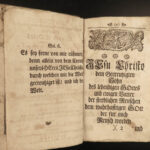 Gal. 6.
Es sey ferne von mir rühmen,
denn allein von dem Creutz
unsers HErrn JEsu Christi,
durch welchen mir die Welt
gecreutziget ist, und ich der
Welt.
JEsu Christo
dem Gecreutzigten
Sohn
des lebendigen GOttes
und einigen Retter
der sterbenden Menschen
dem wahrhafftigen GOtt
der nur auch
Mensch worden
und